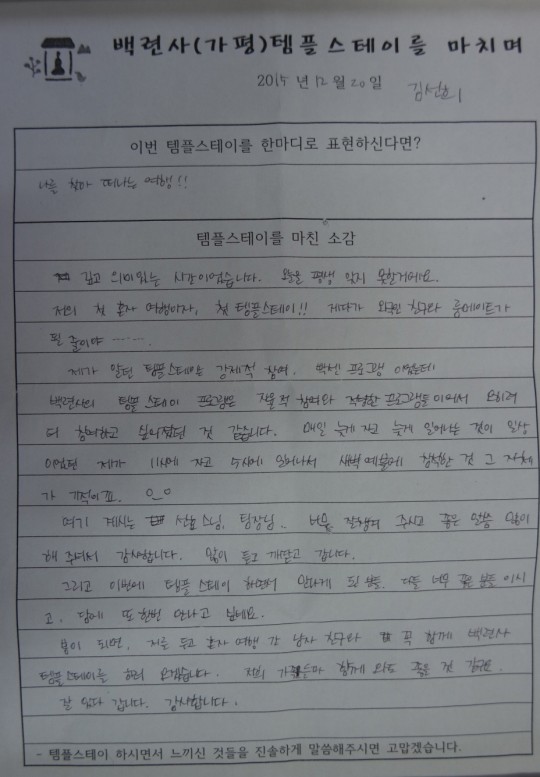 백련사(가평)템플스테이를 마치며
2015년 12월 20일 김선호
이번 템플스테이를 한마디로 표현하신다면?
나를 찾아 떠나는 여행!!
템플스테이를 마친 소감
깊고 의미있는 시간이었습니다. 오늘을 평생 잊지 못할거에요.
저의 첫 혼자 여행이자, 첫 템플스테이!! 게다가 외국인 친구와 룸메이트가
될 줄이야 …….
제가 알던 템플스테이는 강제적 참여, 빡센 프로그램 이었는데
백련사의 템플 스테이 프로그램은 자율적 참여와 적당한 프로그램들이어서 오히려
더 참여하고 싶어졌던 것 같습니다. 매일 늦게 자고 늦게 일어나는 것이 일상
이었던 제가 11시에 자고 4시에 일어나서 새벽 예불에 참석한 것 그 자체
가 기적이죠. ㅇ_ㅇ
여기 계시는 선효스님, 팀장님.. 너무 잘챙겨 주시고 좋은 말씀 많이
해 주셔서 감사합니다. 많이 듣고 깨닫고 갑니다.
그리고 이번에 템플 스테이 하면서 알게 된 분들. 다들 너무 좋은 분들 이시
고, 담에 또 한번 만나고 싶네요.
봄이 되면, 저를 두고 혼자 여행 간 남자 친구와 꼭 함께 백련사
템플스테이를 하러 오겠습니다. 저희 가족들과 함께 와도 좋을 것 같군요.
잘 있다 갑니다. 감사합니다.
- 템플스테이 하시면서 느끼신 것들을 진솔하게 말씀해주시면 고맙겠습니다.